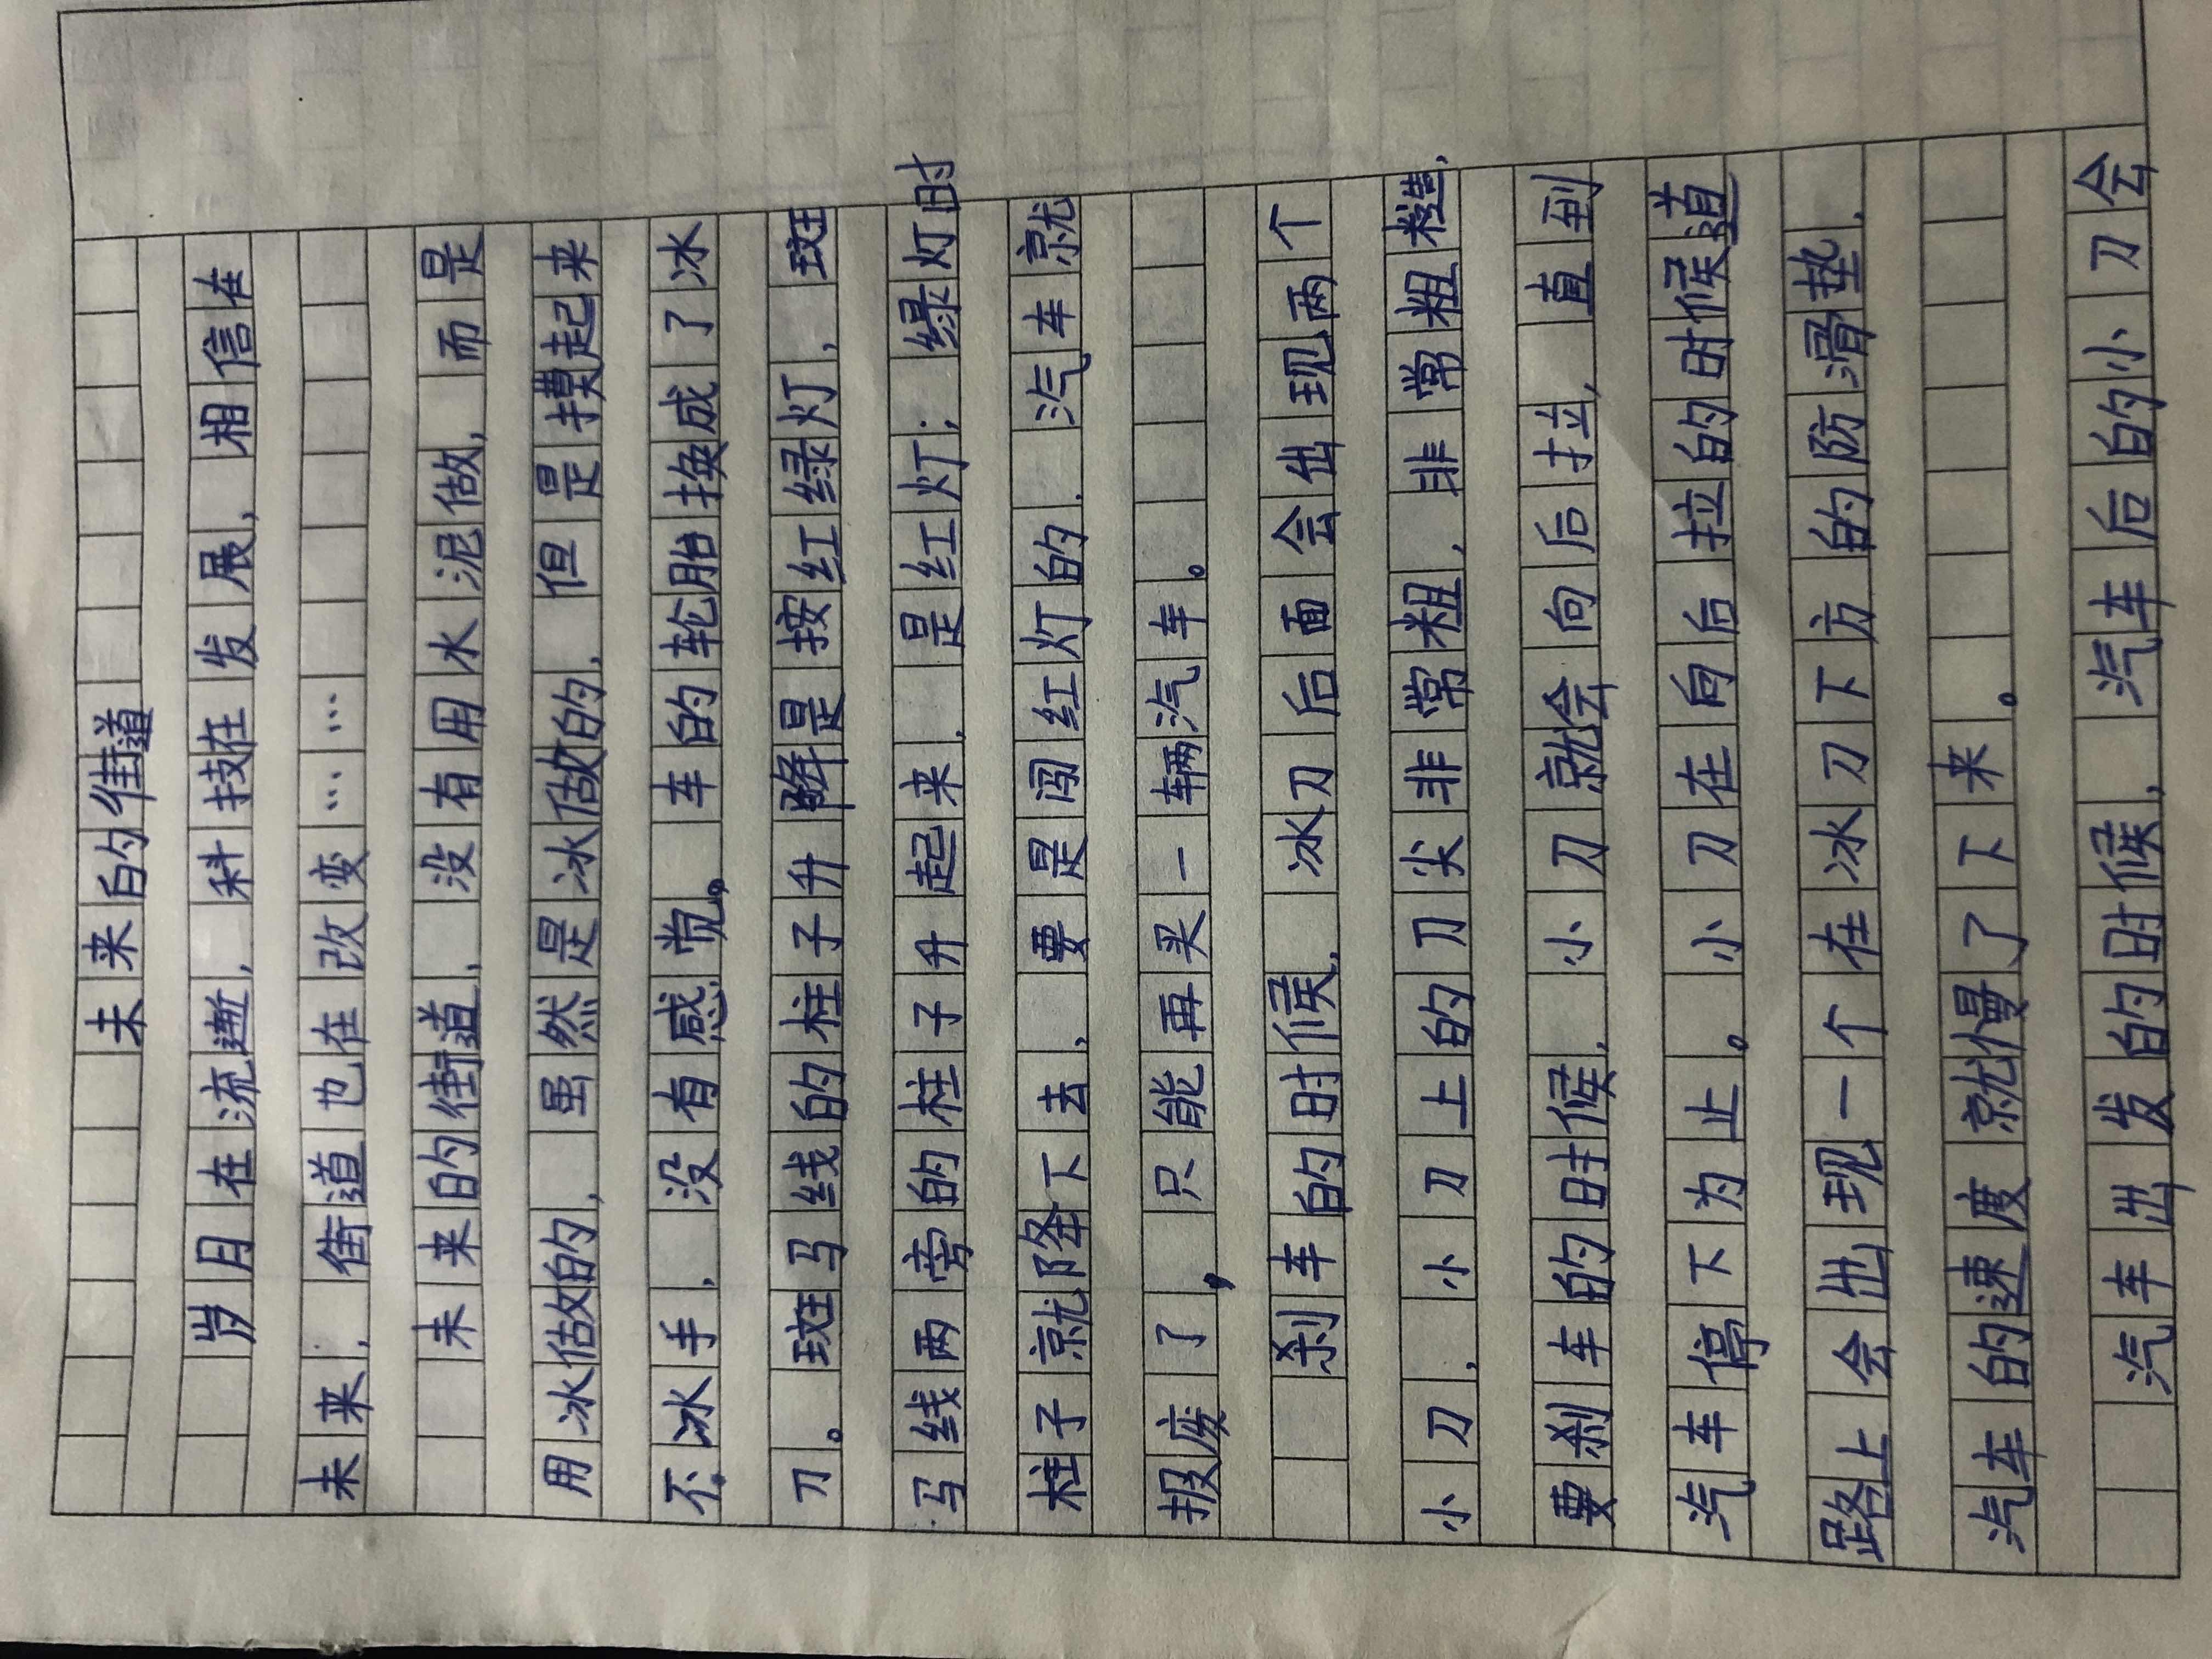 未来的街道
岁月在流逝，科技在发展，相信在
未来，街道也在改变……
未来的街道，没有用水泥做，而是
用冰做的，虽然是冰做的，但是摸起来
不冰手，没有感觉。车的轮胎换成了冰
刀。斑马线的柱子升降是按红绿灯，斑
马线两旁的柱子升起来，是红灯；绿灯时
柱子就降下去，要是闯红灯的，汽车就
报废了，只能再买一辆汽车。
刹车的时候，冰刀后面会出现两个
小刀，小刀上的刀尖非常粗，非常粗糙，
要刹车的时候，小刀就会向后拉，直到
汽车停下为止。小刀在向后拉的时候道
路上会出现一个在冰刀下方的防滑垫，
汽车的速度就慢了下来。
汽车出发的时候，汽车后的小刀会